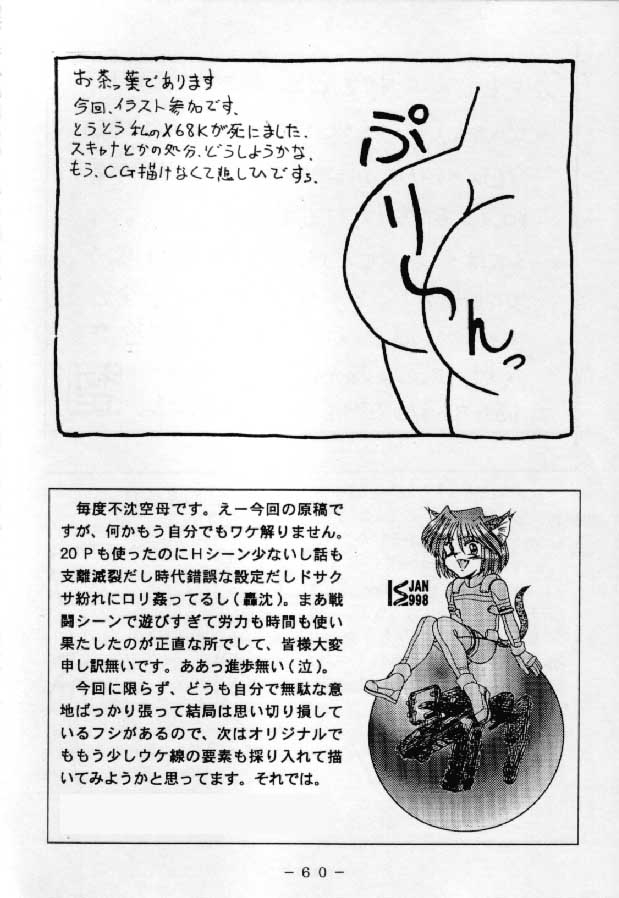 お茶っ葉であります
今回、イラスト参加です。
とうとう私のX68Kが死にました。
スキャナとかの処分、どうしようかな。
もう、CG描けなくて悲しひですぅ。
ぷりーんっ
毎度不沈空母です。えー今回の原稿で
すが、何かもう自分でもワケ解りません。
20Pも使ったのにHシーン少ないし話も
支離滅裂だし時代錯誤な設定だしドサク
サ紛れにロリ姦ってるし(轟沈)。まあ戦
闘シーンで遊びすぎて労力も時間も使い
果たしたのが正直な所でして、皆様大変
申し訳無いです。ああっ進歩無い(泣)。
今回に限らず、どうも自分で無駄な意
地ばっかり張って結局は思い切り損して
いるフシがあるので、次はオリジナルで
ももう少しウケ線の要素も採り入れて描
いてみようかと思ってます。それでは。
JAN
1998
-60-